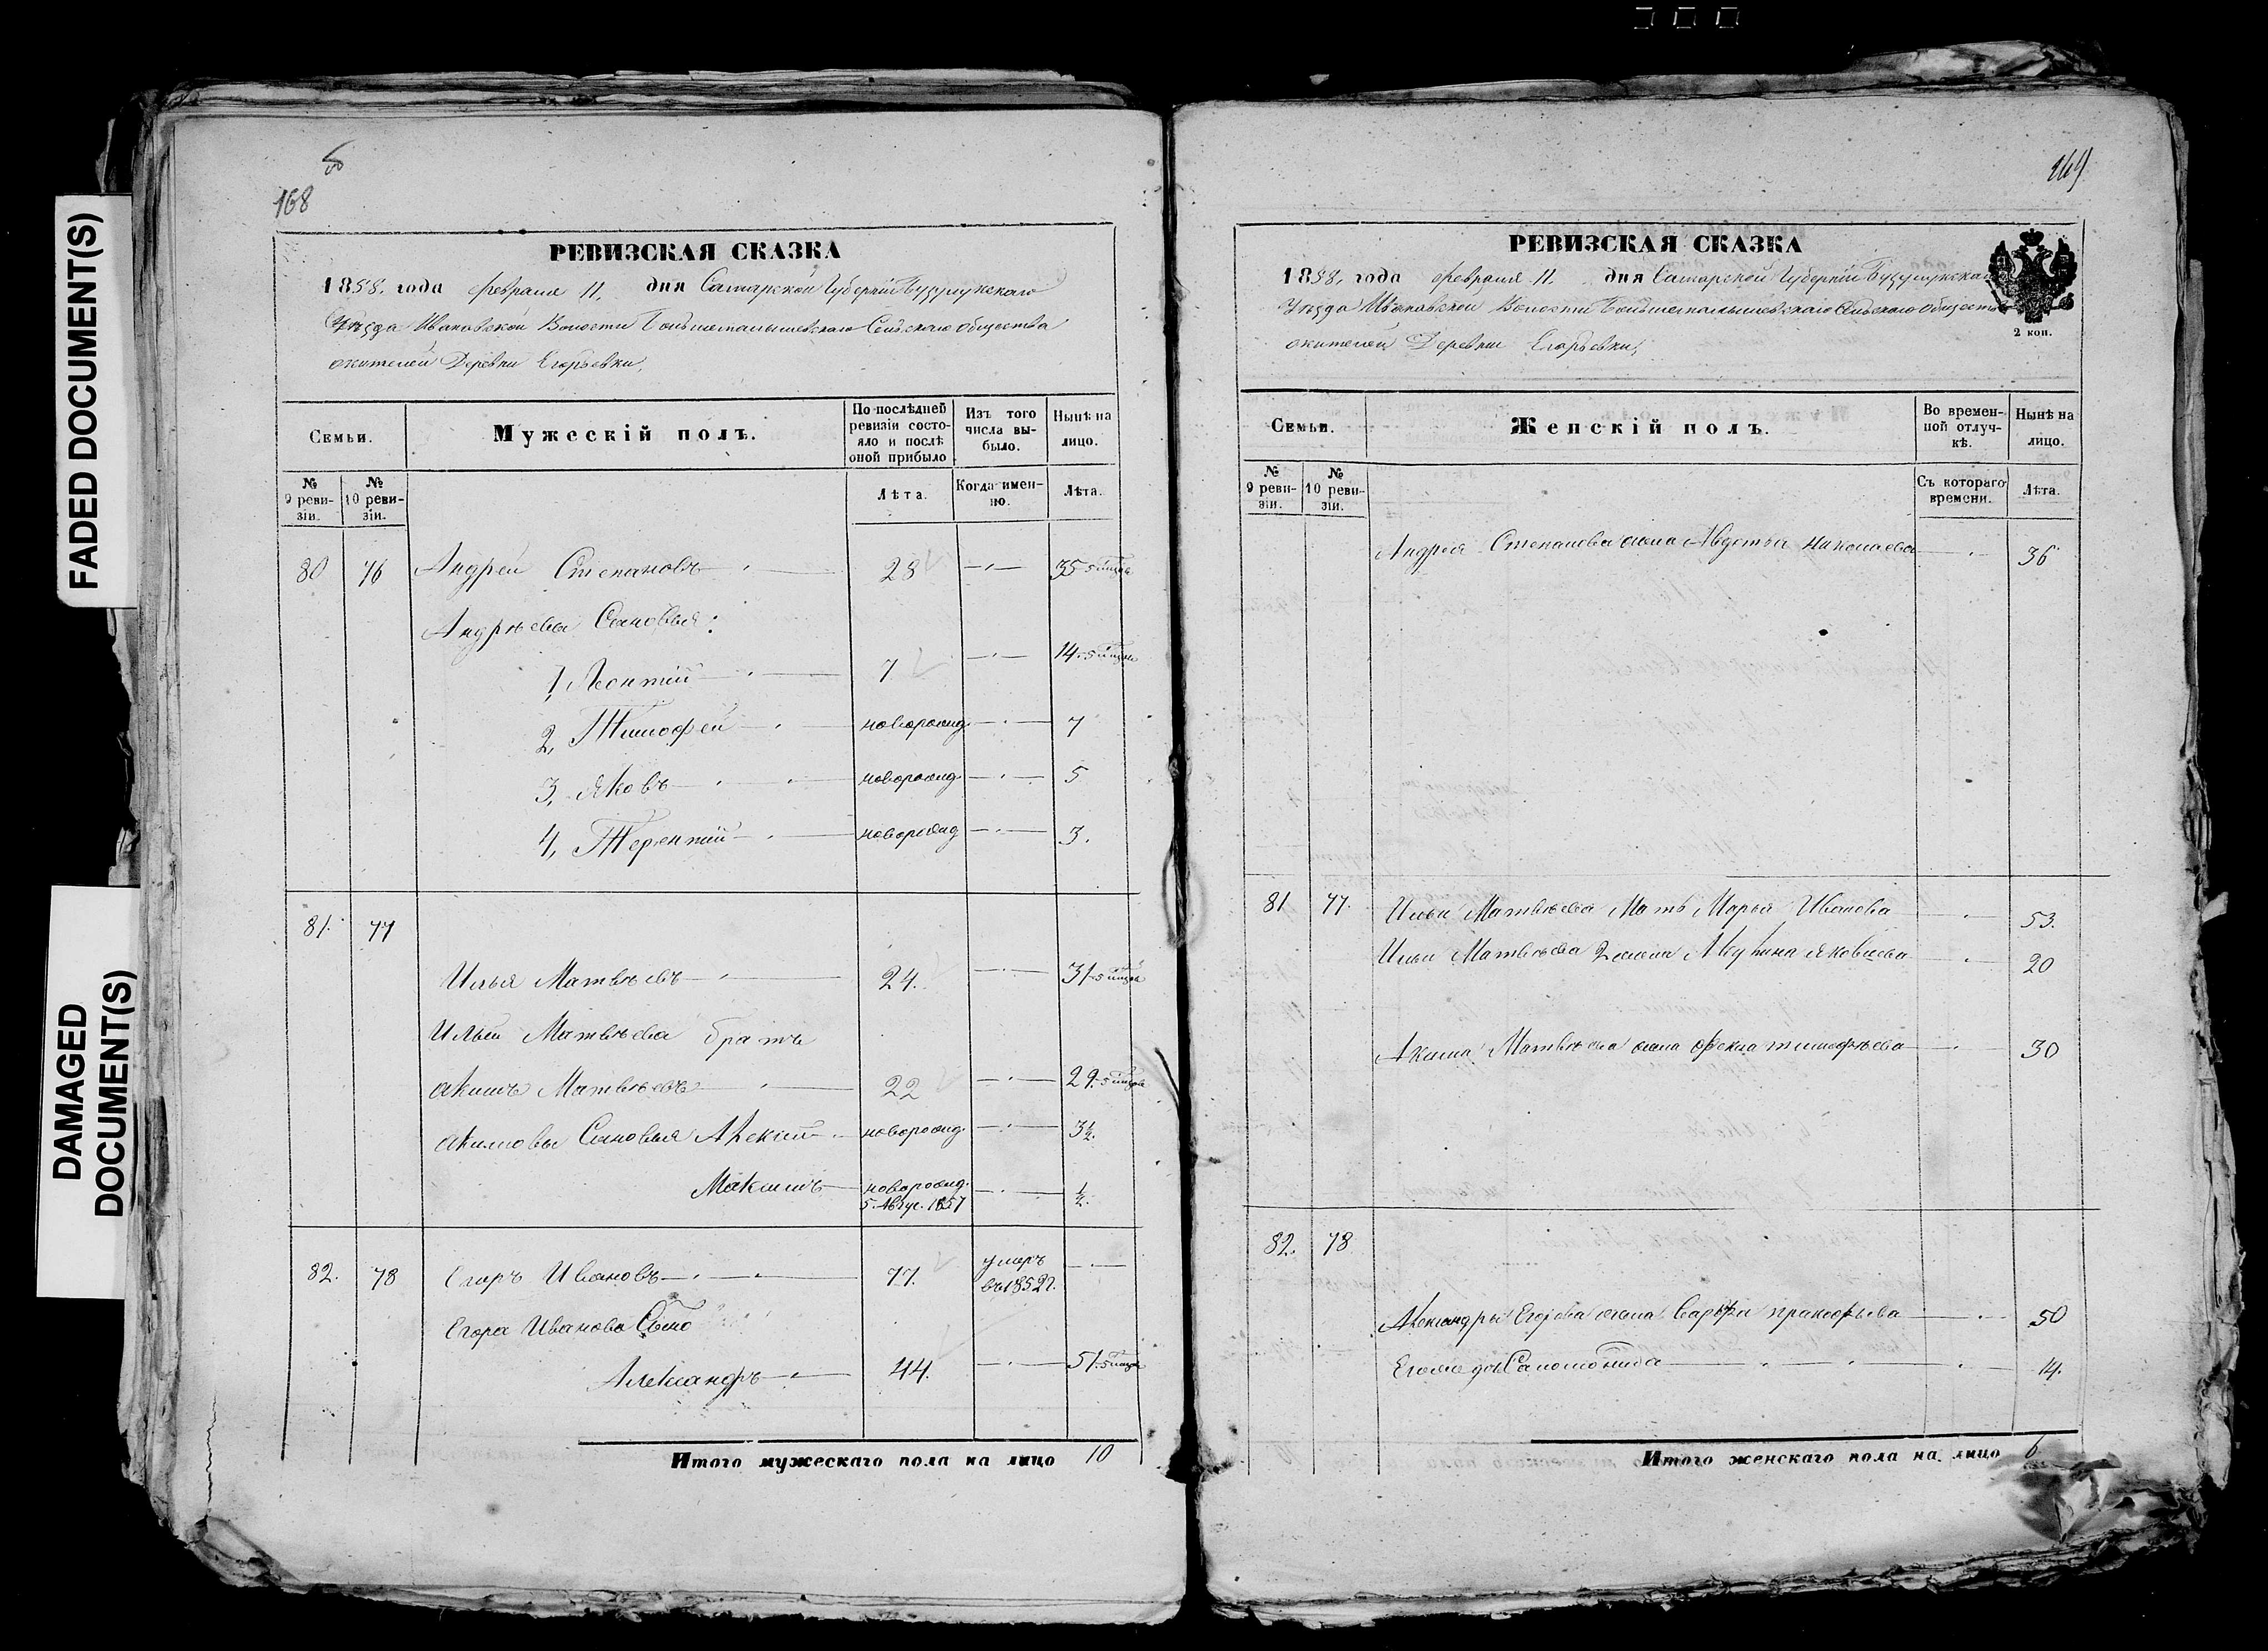 FADED DOCUMENT(S)
DAMAGED
DOCUMENT(S)
168
РЕВИЗСКАЯ СКАЗКА
1858. года февраля 11. дня Самарской Губерніи Бузулукскаго
Уѣзда Ивановской Волости Сельскаго Общества
жителей Деревни Егорьевки,
Семьи.
Мужескій полъ.
По послѣдней
ревизіи состо-
яло и послѣ
оной прибыло
Изъ того
числа вы-
было.
Нынѣ на
лицо.
№
9 реви-
зіи.
№
10 реви-
зіи.
Лѣта.
Когда имен-
но.
Лѣта.
80 76 Андрей Степановъ 28 35
Андрѣевы Сыновья:
1, Леонтій 7 14
2, Тимофей новорожд. 7
3, Яковъ новорожд. 5
4, Терентій новорожд 3.
81. 77
Илья Матвѣевъ 24. 31
Ильи Матвѣева братъ
Акимъ Матвѣевъ 22 29
Акимовы Сыновья Алексій новорожд. 3½.
Максимъ новорожд. ½.
5. Авгус. 1857
82. 78 Егоръ Ивановъ 77. умеръ
въ 1852 г.
Егора Иванова Сынъ
Александръ 44. 51
Итого мужескаго пола на лицо 10
169
РЕВИЗСКАЯ СКАЗКА
1858, года февраля 11. дня Самарской Губерніи Бузулукскаго
Уѣзда Ивановской Волости Сельскаго Общества
жителей Деревни Егорьевки,
2 коп.
Семьи.
Женскій полъ.
Во времен-
ной отлуч-
кѣ.
Нынѣ на
лицо.
№
9 реви-
зіи.
№
10 реви-
зіи.
Съ котораго
времени.
Лѣта.
Андрея Степанова жена Авдотья Николаева 36
81 77. Ильи Матвѣева Мать Марья Иванова 53.
Ильи Матвѣева жена Яковлева 20
Акима Матвѣева жена Фекла Тимофѣева 30
82. 78
Александры Егорова жена Прокофьева 50
Егожа дочь 14.
Итого женскаго пола на лицо 6